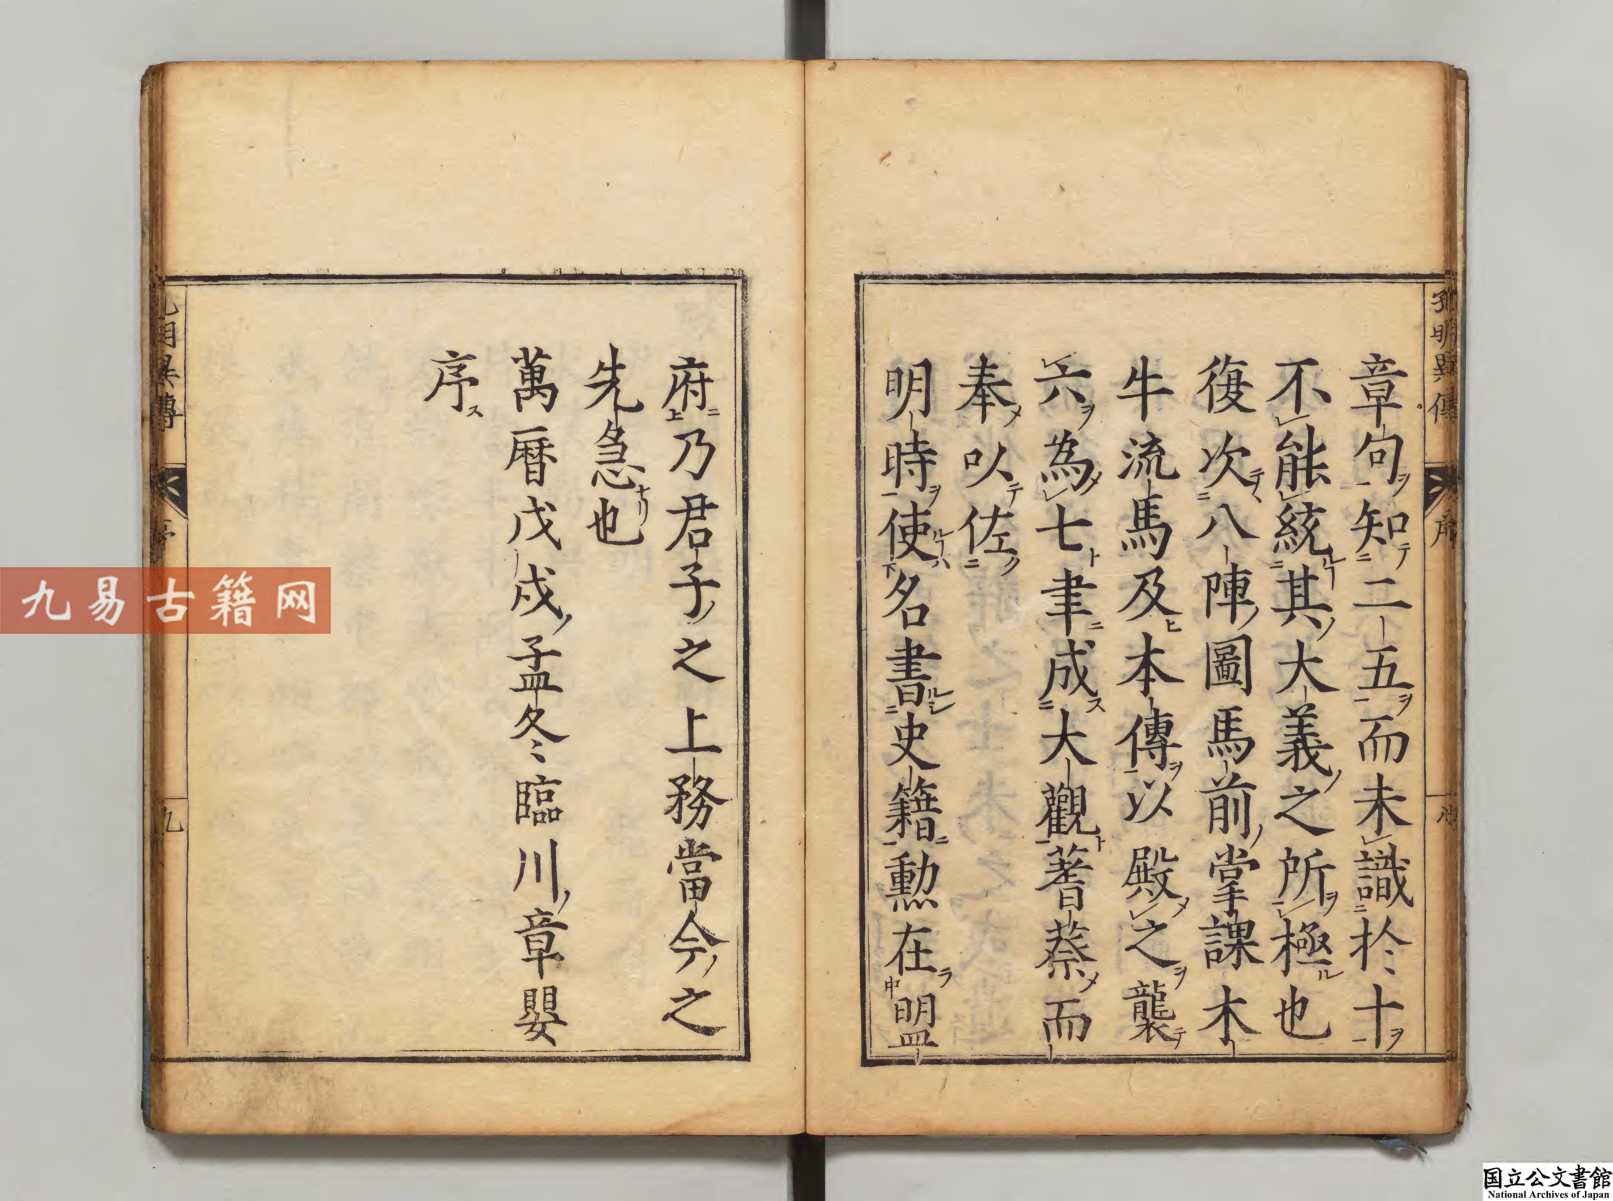 章句知二五而未識於十
不能統其大義之所極也
復次八陣圖馬前掌課木
牛流馬及本傳以殿之襲
六為七聿成大觀蓍蔡而
奉以佐
明時使名書史籍勲在盟
府乃君子之上務當今之
先急也
萬曆戊戌孟冬臨川章嬰
序
孔明異傳
序
九
九易古籍网
国立公文書館
National Archives of Japan